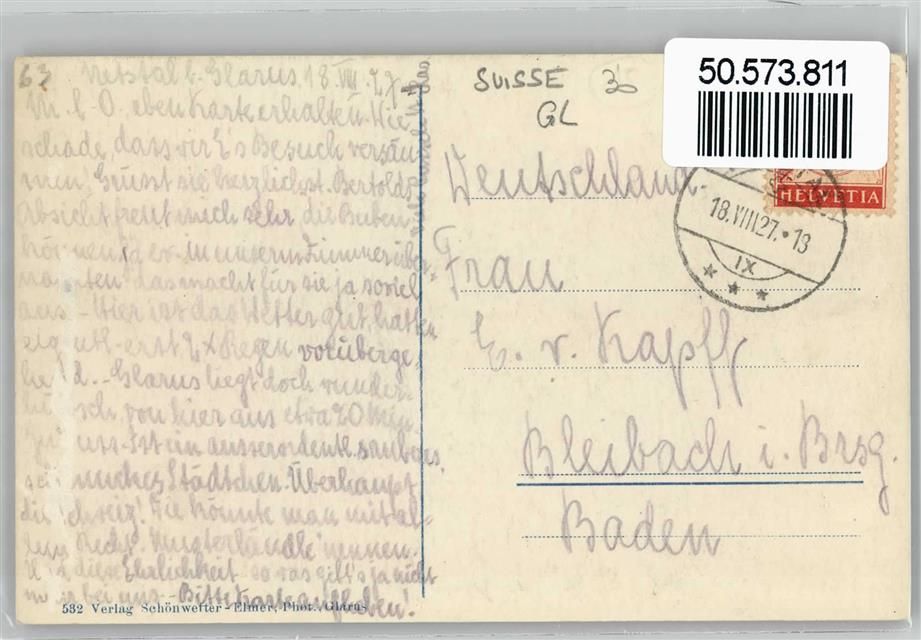 63 Netstal b. Glarus, 18. VIII. 27
M. l. O. eben Karte erhalten. Wie
schade, dass wir E's Besuch versäu-
men! Grüsst sie herzlichst. Bertolds
Absicht freut mich sehr, die Buben
können ja ev. in unserm Zimmer über-
nachten. das macht für sie ja soviel
aus - Hier ist das Wetter gut, hatten
eigentl. erst 2 x Regen vorüberge-
hend. - Glarus liegt doch wunder-
hübsch, von hier aus etwa 20 Min.
zu Fuss. Ist ein ausserordentl. sauberes
Städtchen. Überhaupt
die Schweiz! Die könnte man mit al-
lem Recht "Musterländle" nennen.
diese Ehrlichkeit - so was gibt's ja nicht
mehr bei uns - Bitte Karte aufheben!
532 Verlag Schönwetter-Elmer, Phot., Glarus
SUISSE 35
GL
50.573.811
HELVETIA
18.VIII.27.·13
IX
Deutschland.
Frau
E. v. Kapff
Bleibach i. Brsg.
Baden